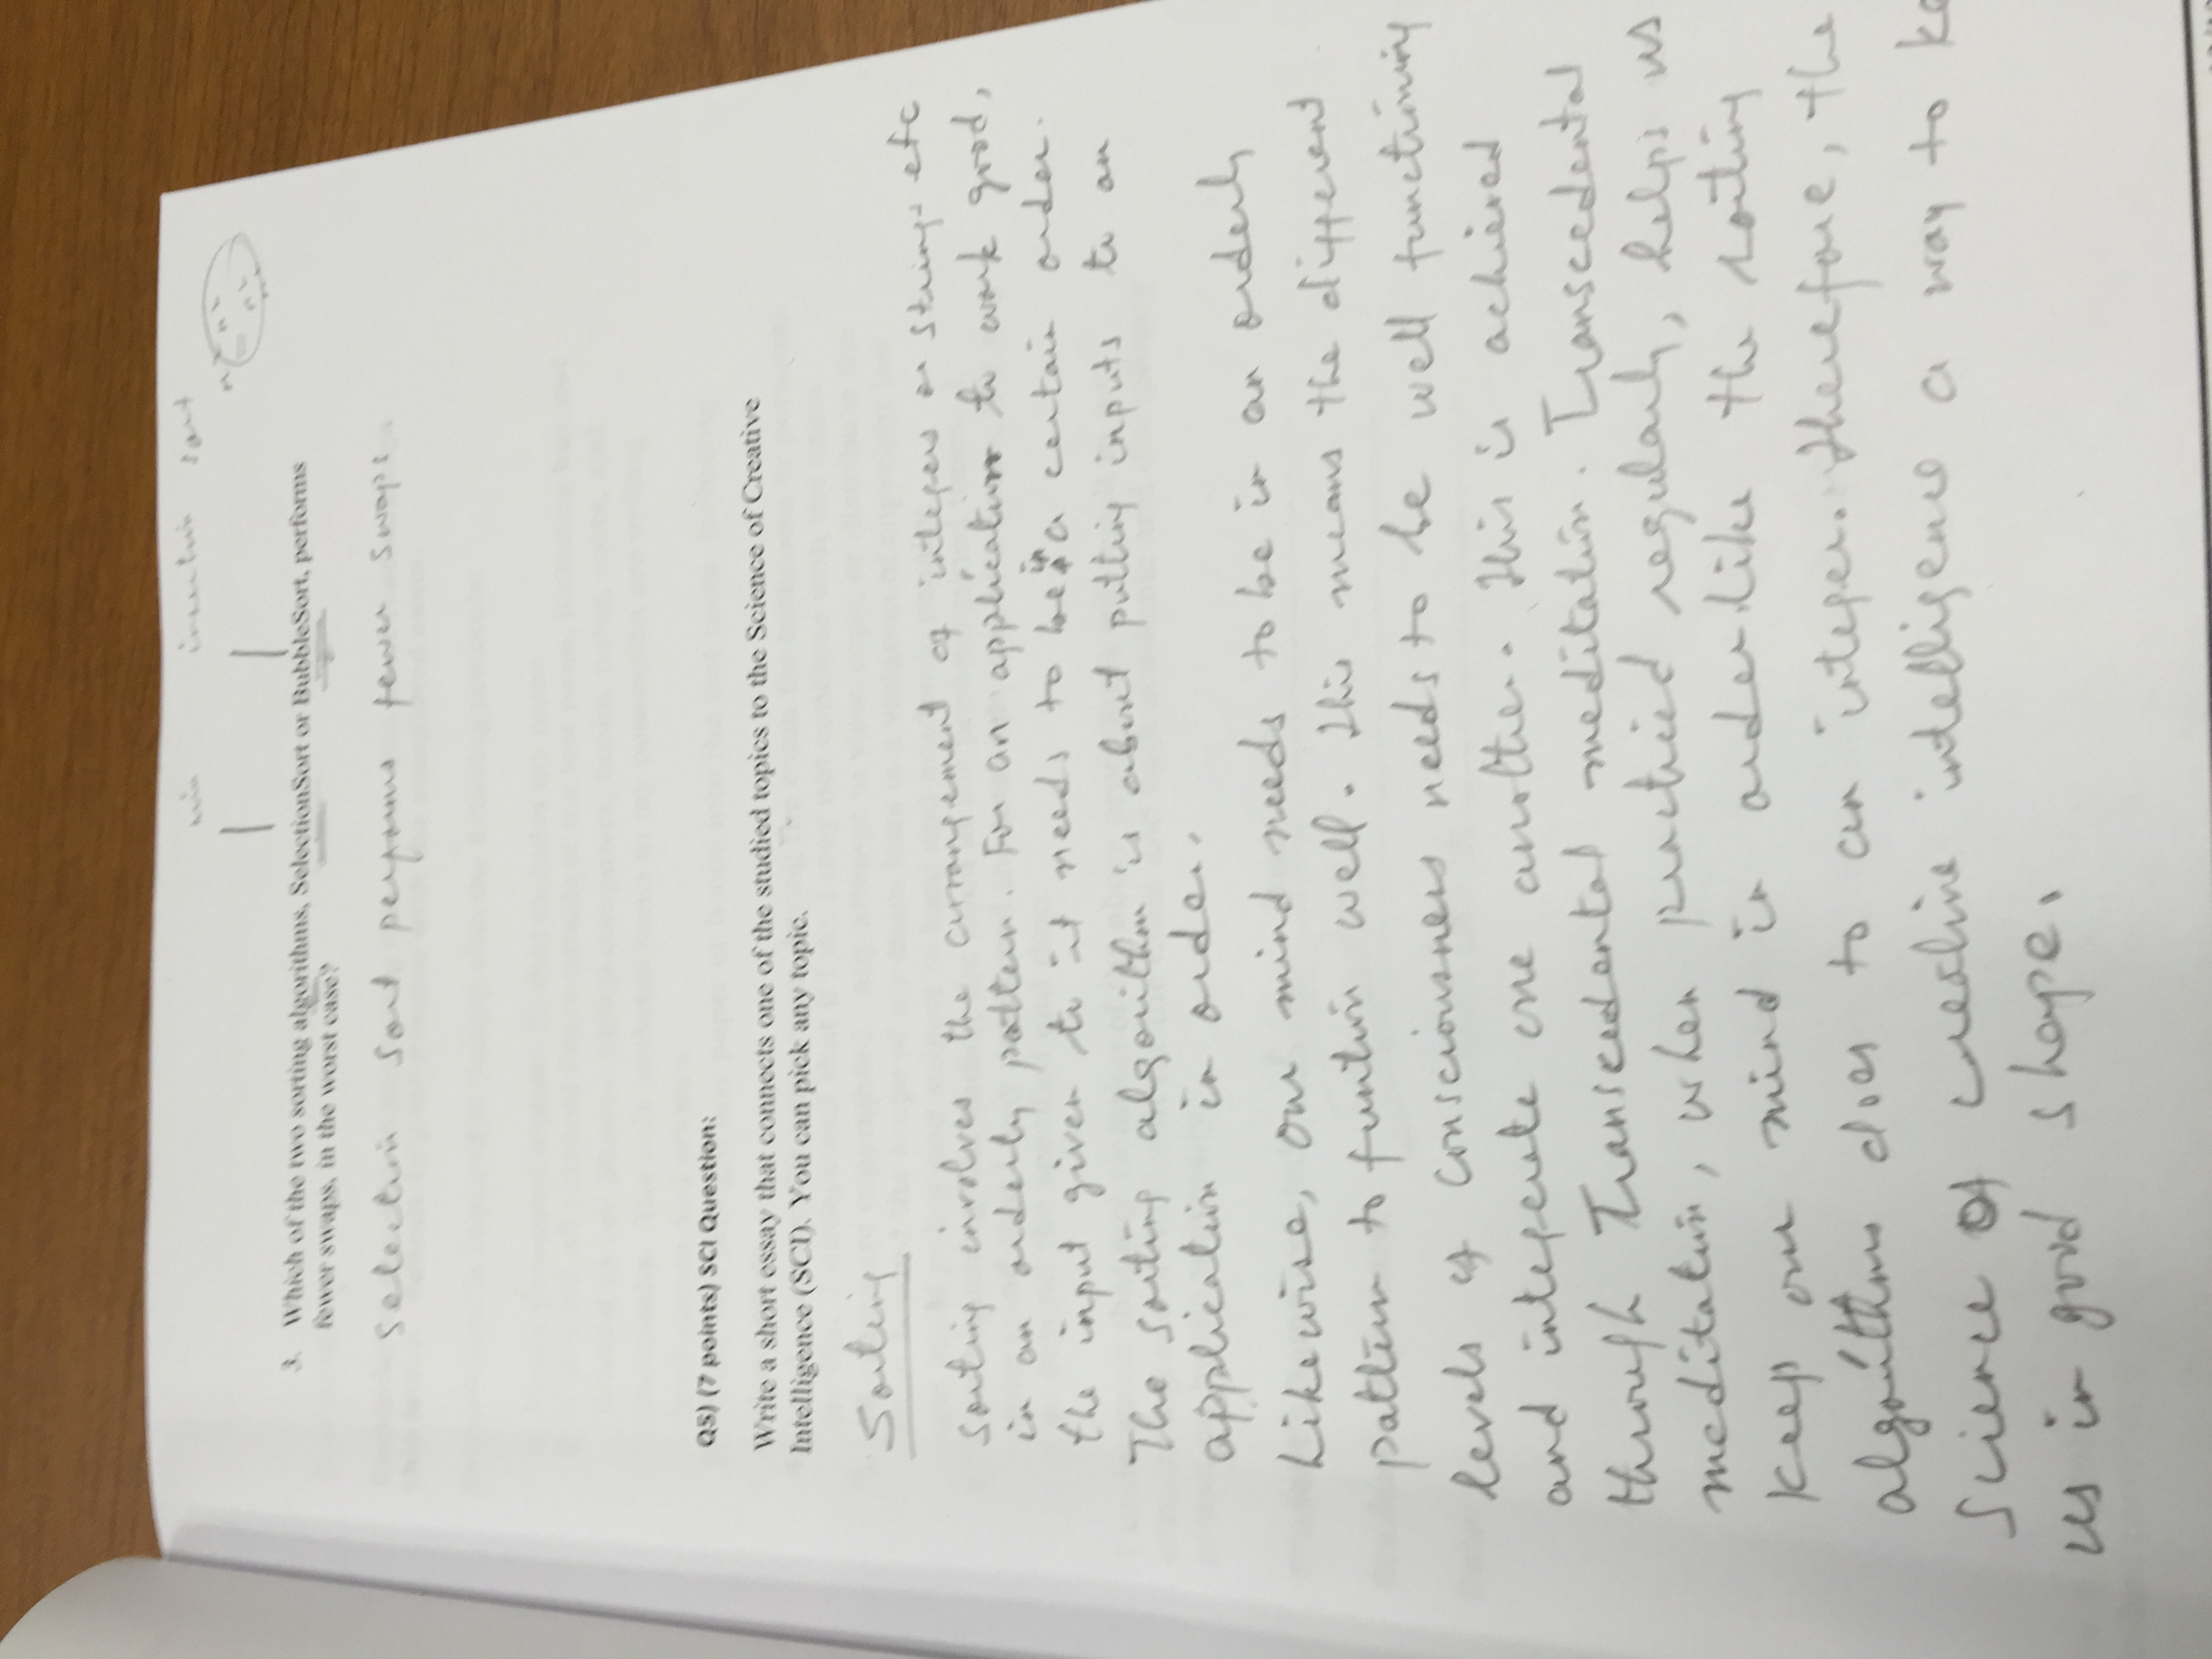 min insertion sort
3. Which of the two sorting algorithms, SelectionSort or BubbleSort, performs
fewer swaps, in the worst case?
Selection Sort performs fewer swaps
Q5) (7 points) SCI Question:
Write a short essay that connects one of the studied topics to the Science of Creative
Intelligence (SCI). You can pick any topic.
Sorting
Sorting involves the arrangement of integers or strings etc
in an orderly pattern. For an application to work good,
the input given to it needs to be in a certain order.
The sorting algorithm is about putting inputs to an
application in order.
Likewise, our mind needs to be in an orderly
pattern to funtion well. This means the different
levels of consciousness needs to be well functioning
and integerate one another. This is achieved
through Transcedental meditation. Transcedental
meditation, when practiced regularly, helps us
keep our mind in order like the sorting
algorithms does to an integer. Therefore, the
Science of creative intelligence a way to
us in good shape.